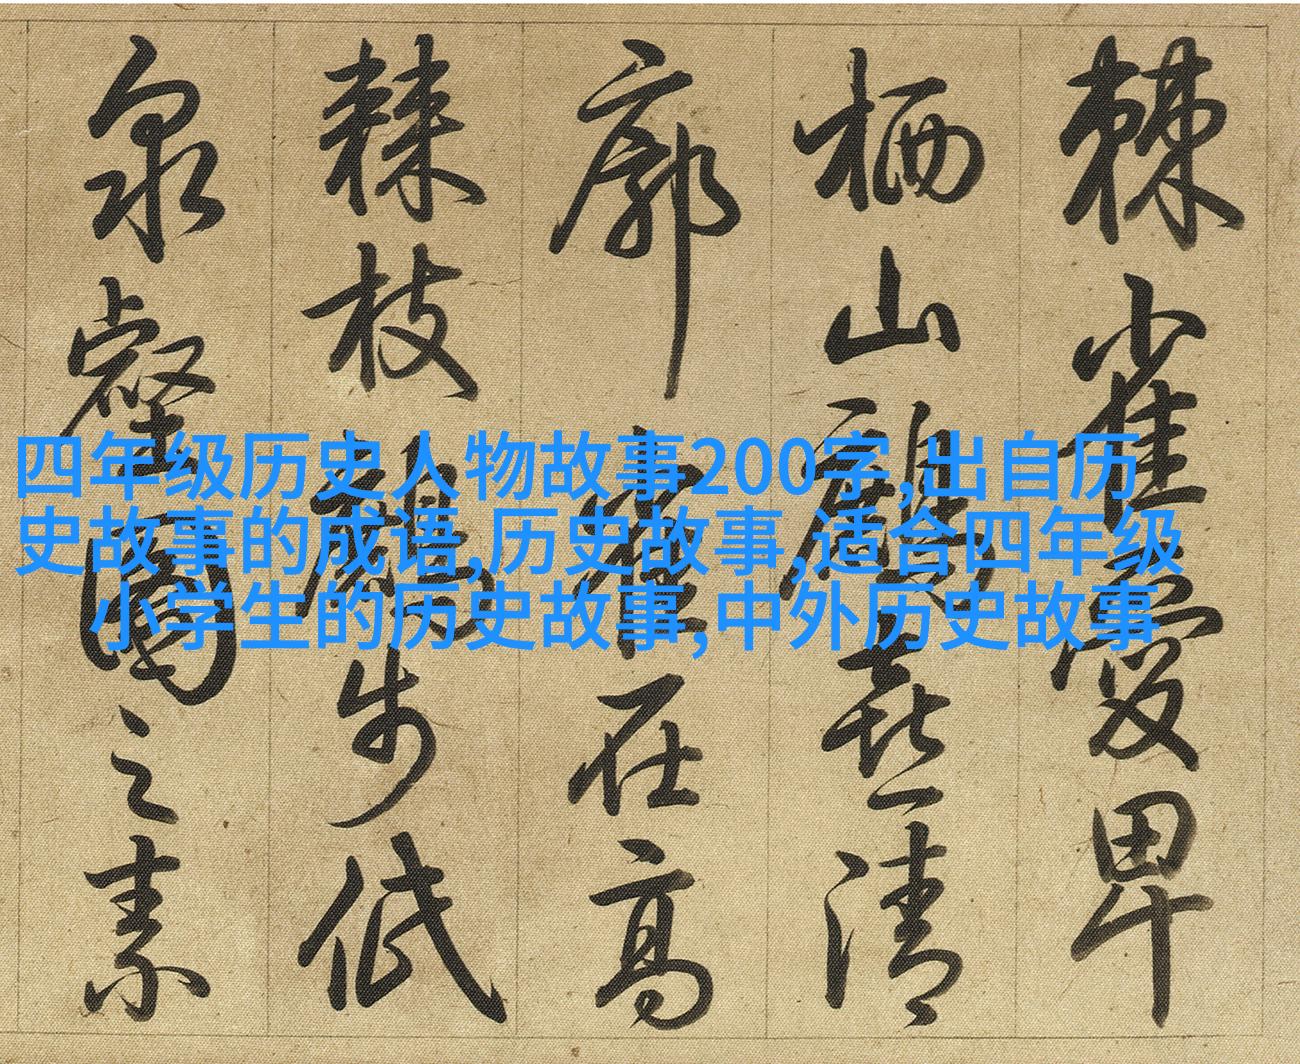 四年级历史人物故事200字,出自历
史故事的成语,历史故事,适合四年级
小学生的历史故事,中外历史故事
棘雀愛卑
栖山清
廓在高
棘枝步低
泉壑之素